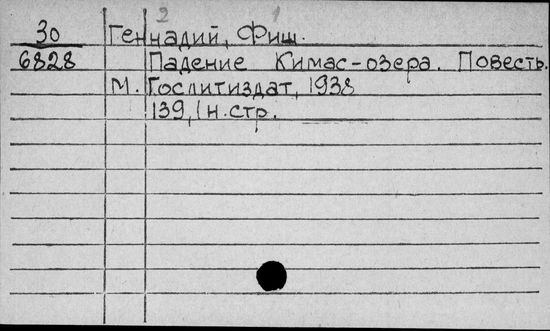 2 1
30 Геннадий, Фиш.
6828 Падение Кимас-озера. Повесть.
М. Гослитиздат, 1938
139, 1 н. стр.